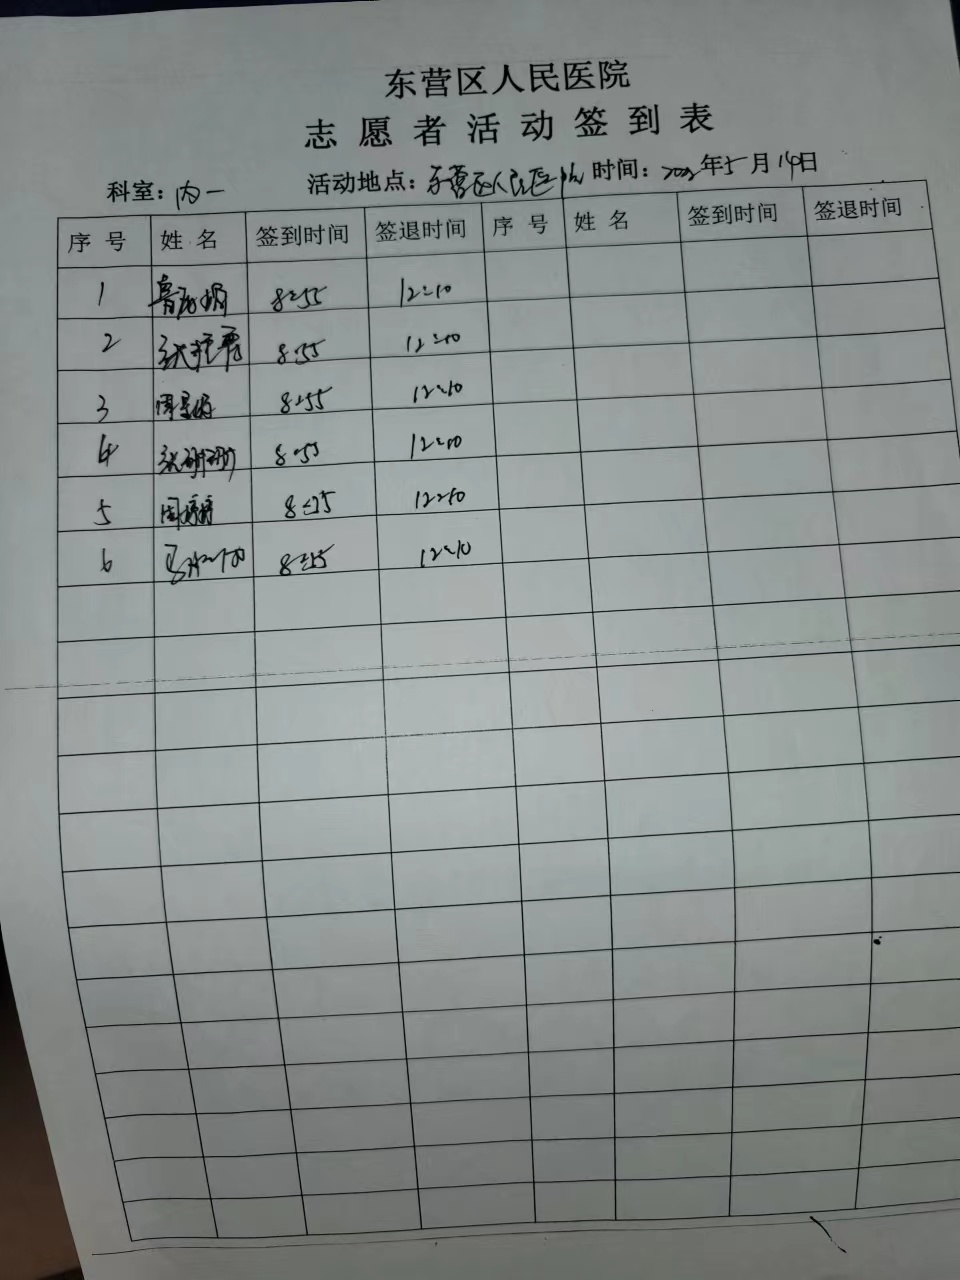 东营区人民医院
志愿者活动签到表
科室：内一 活动地点：东营区人民医院 时间：2022年5月14日
序号 姓名 签到时间 签退时间 序号 姓名 签到时间 签退时间
1 8:55 12:10
2 8:55 12:10
3 8:55 12:10
4 8:55 12:10
5 周 12:10
6 12:10